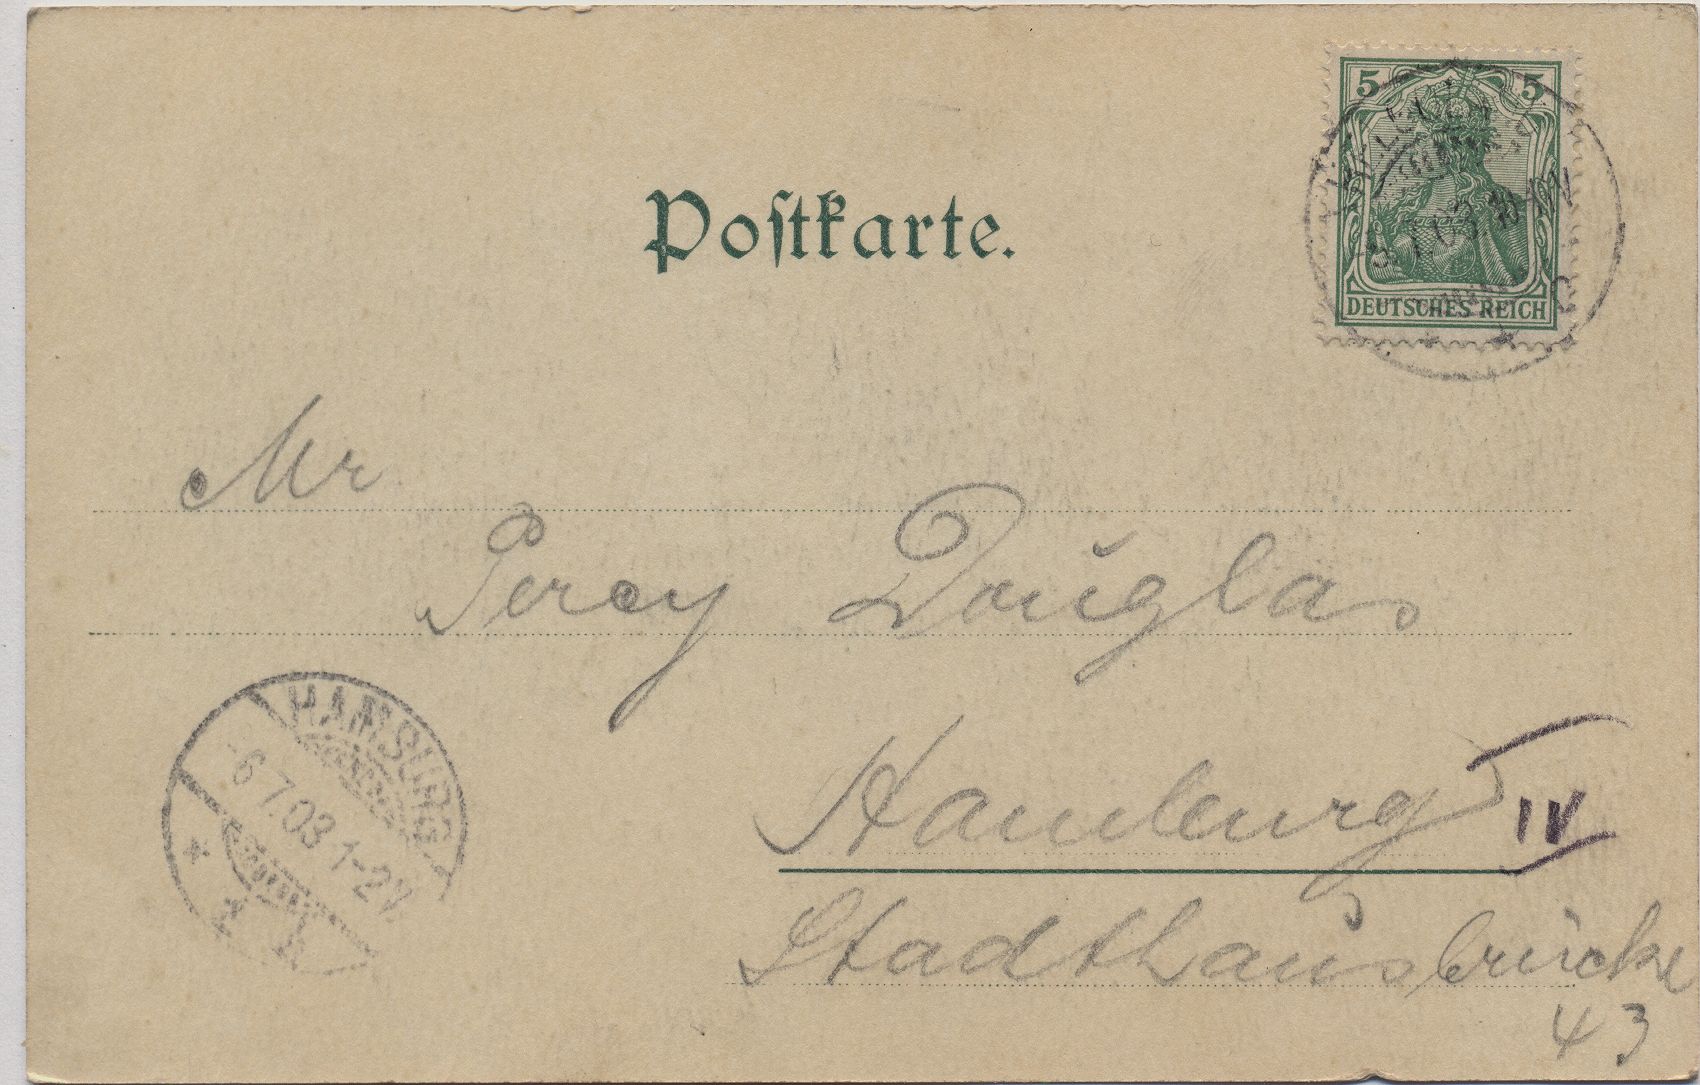 5 5
DEUTSCHES REICH
Postkarte.
Mr
Percy Douglas
Hamburg
IV
Stadthausbrücke
43
HAMBURG
-6.7.03.1-2V.
* 1 k